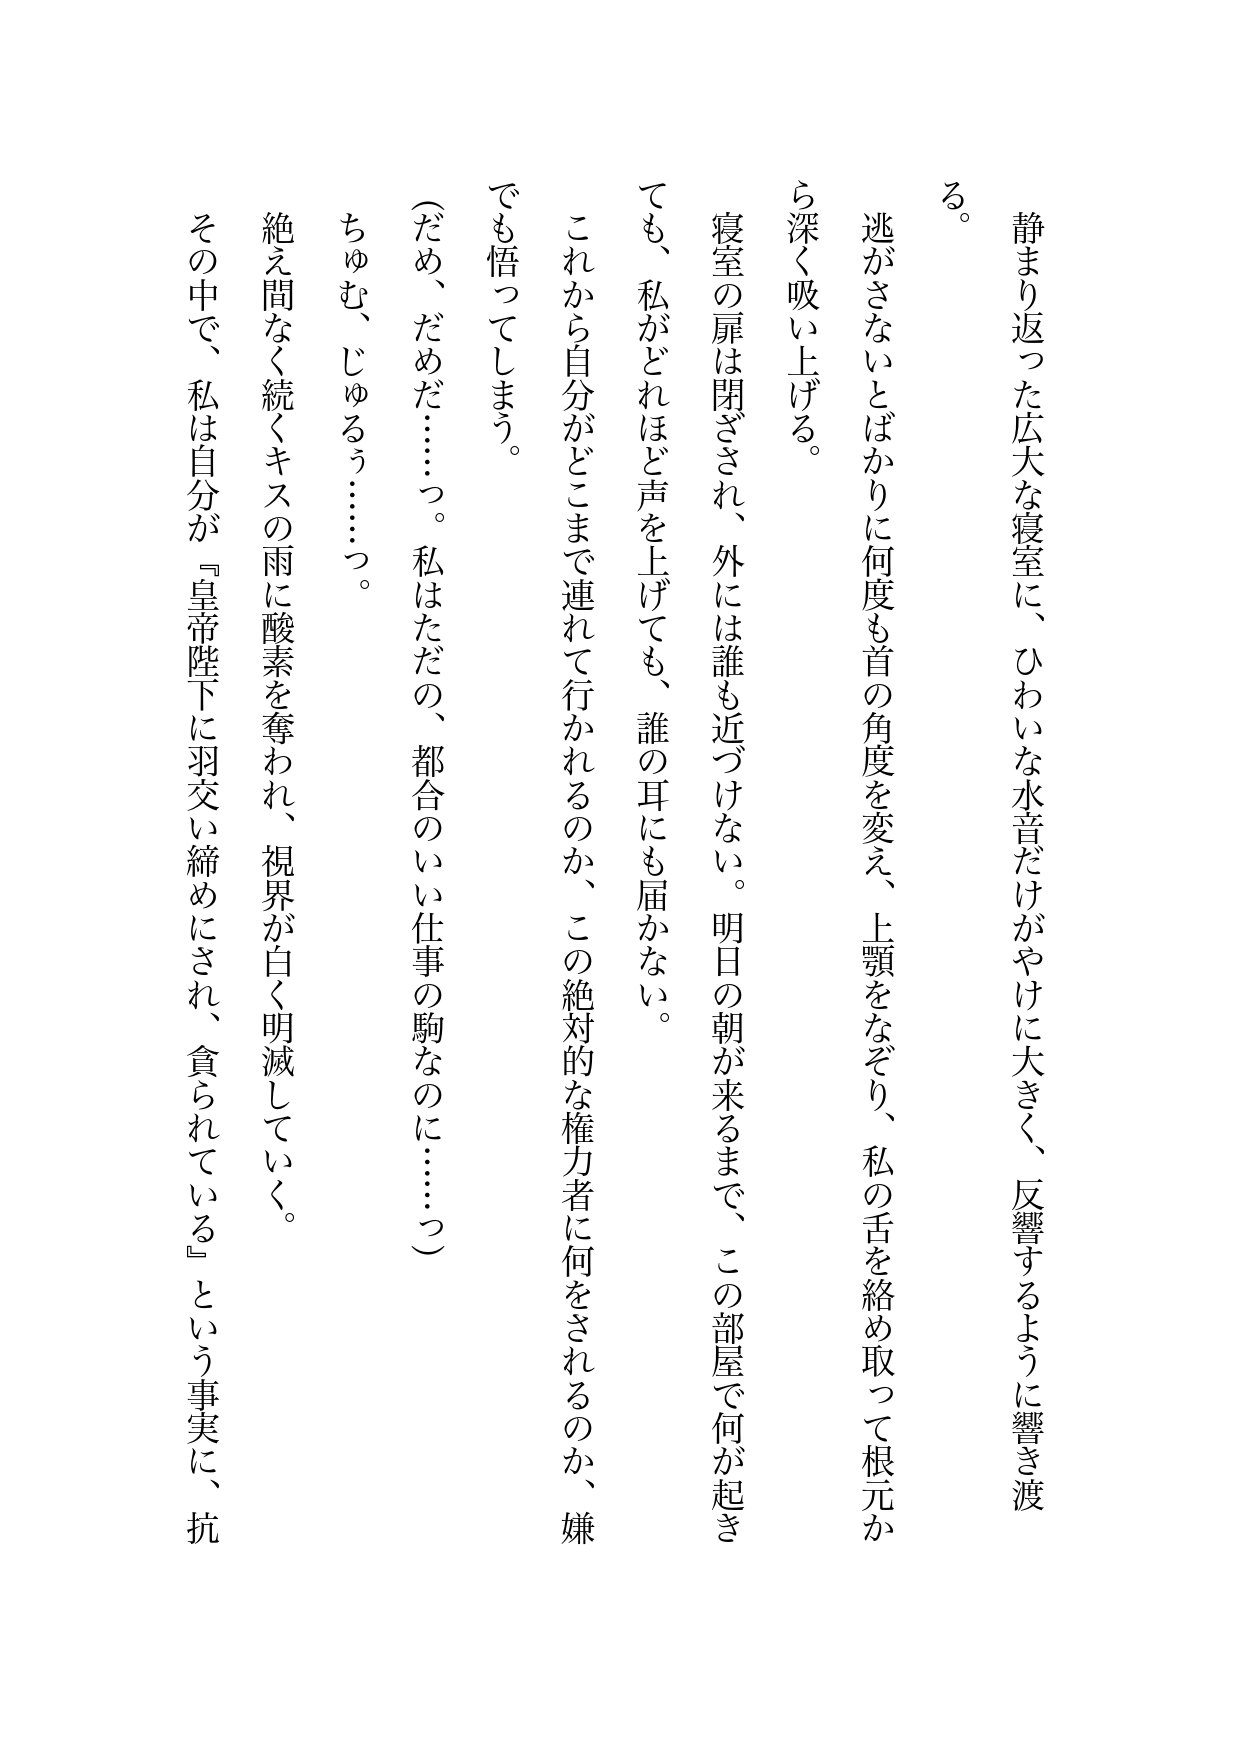 静まり返った広大な寝室に、ひわいな水音だけがやけに大きく、反響するように響き渡
る。
逃がさないとばかりに何度も首の角度を変え、上顎をなぞり、私の舌を絡め取って根元か
ら深く吸い上げる。
寝室の扉は閉ざされ、外には誰も近づけない。明日の朝が来るまで、この部屋で何が起き
ても、私がどれほど声を上げても、誰の耳にも届かない。
これから自分がどこまで連れて行かれるのか、この絶対的な権力者に何をされるのか、嫌
でも悟ってしまう。
（だめ、だめだ……っ。私はただの、都合のいい仕事の駒なのに……っ）
ちゅむ、じゅるぅ……っ。
絶え間なく続くキスの雨に酸素を奪われ、視界が白く明滅していく。
その中で、私は自分が『皇帝陛下に羽交い締めにされ、貪られている』という事実に、抗